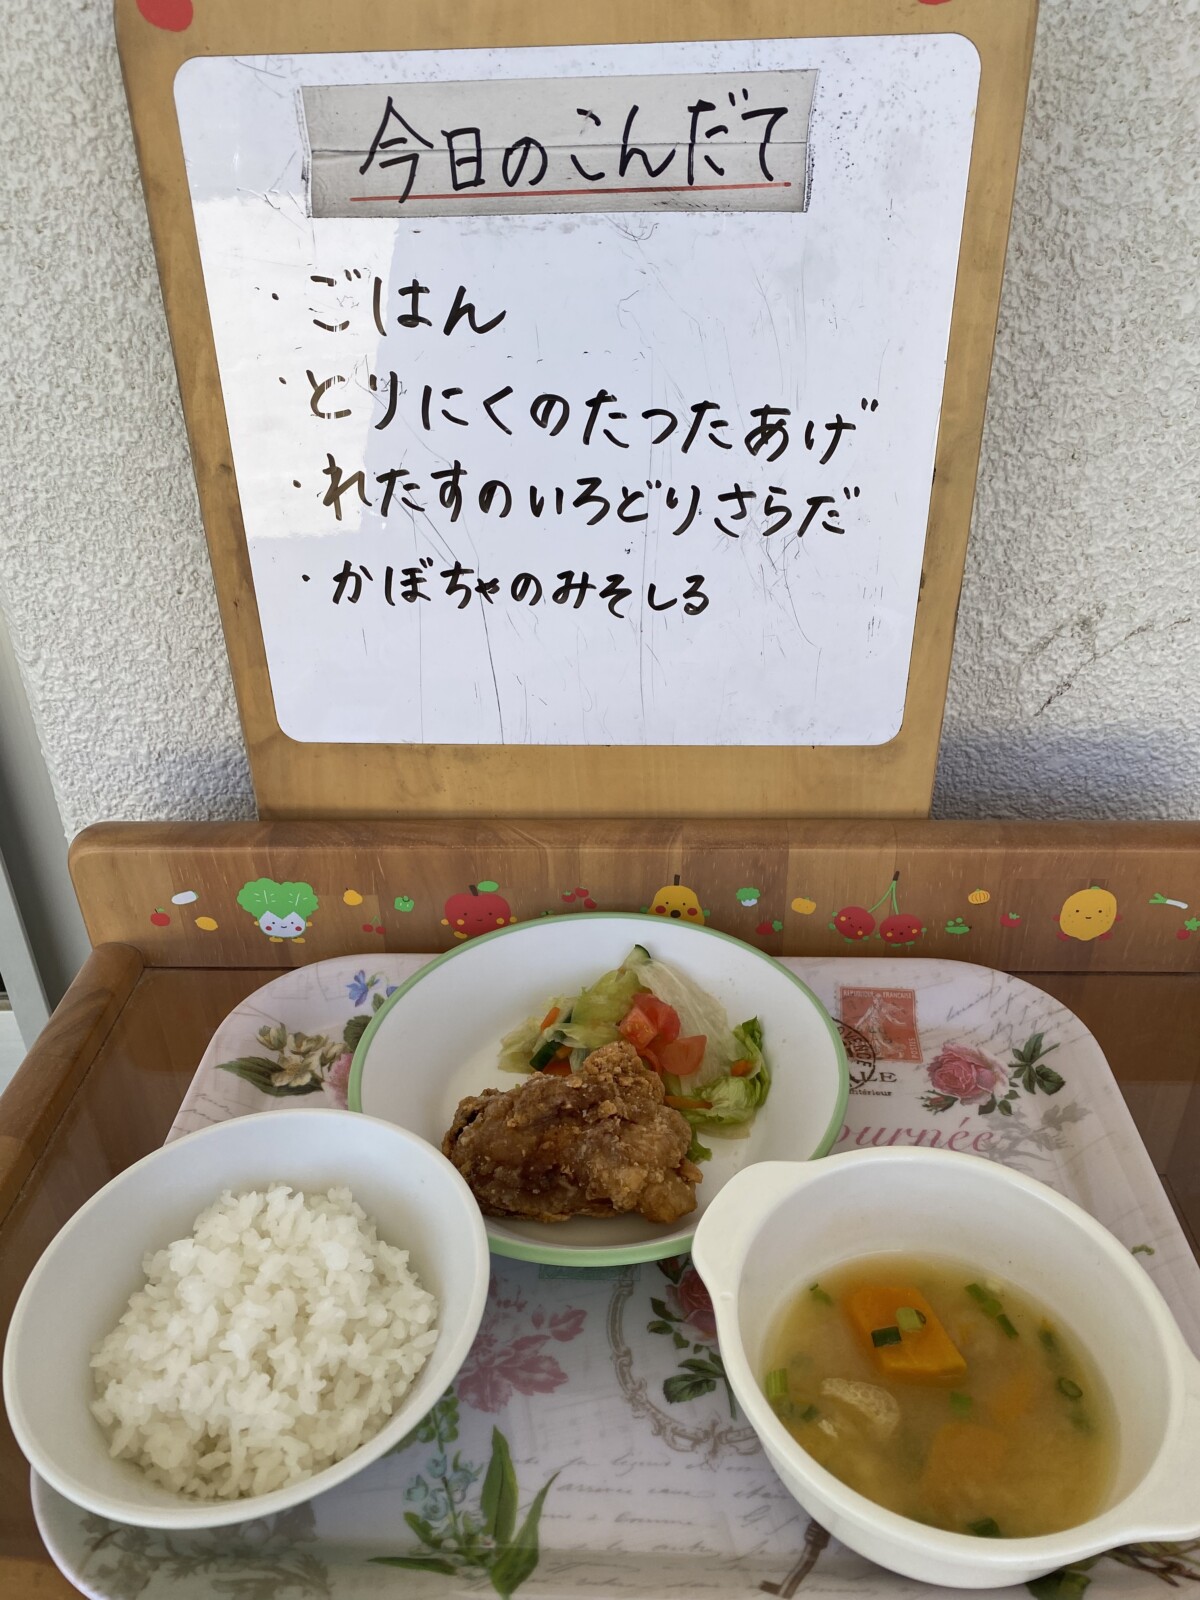 今日のこんだて
・ごはん
・とりにくのたつたあげ
・れたすのいろどりさらだ
・かぼちゃのみそしる
REPUBLIQUE FRANÇAISE